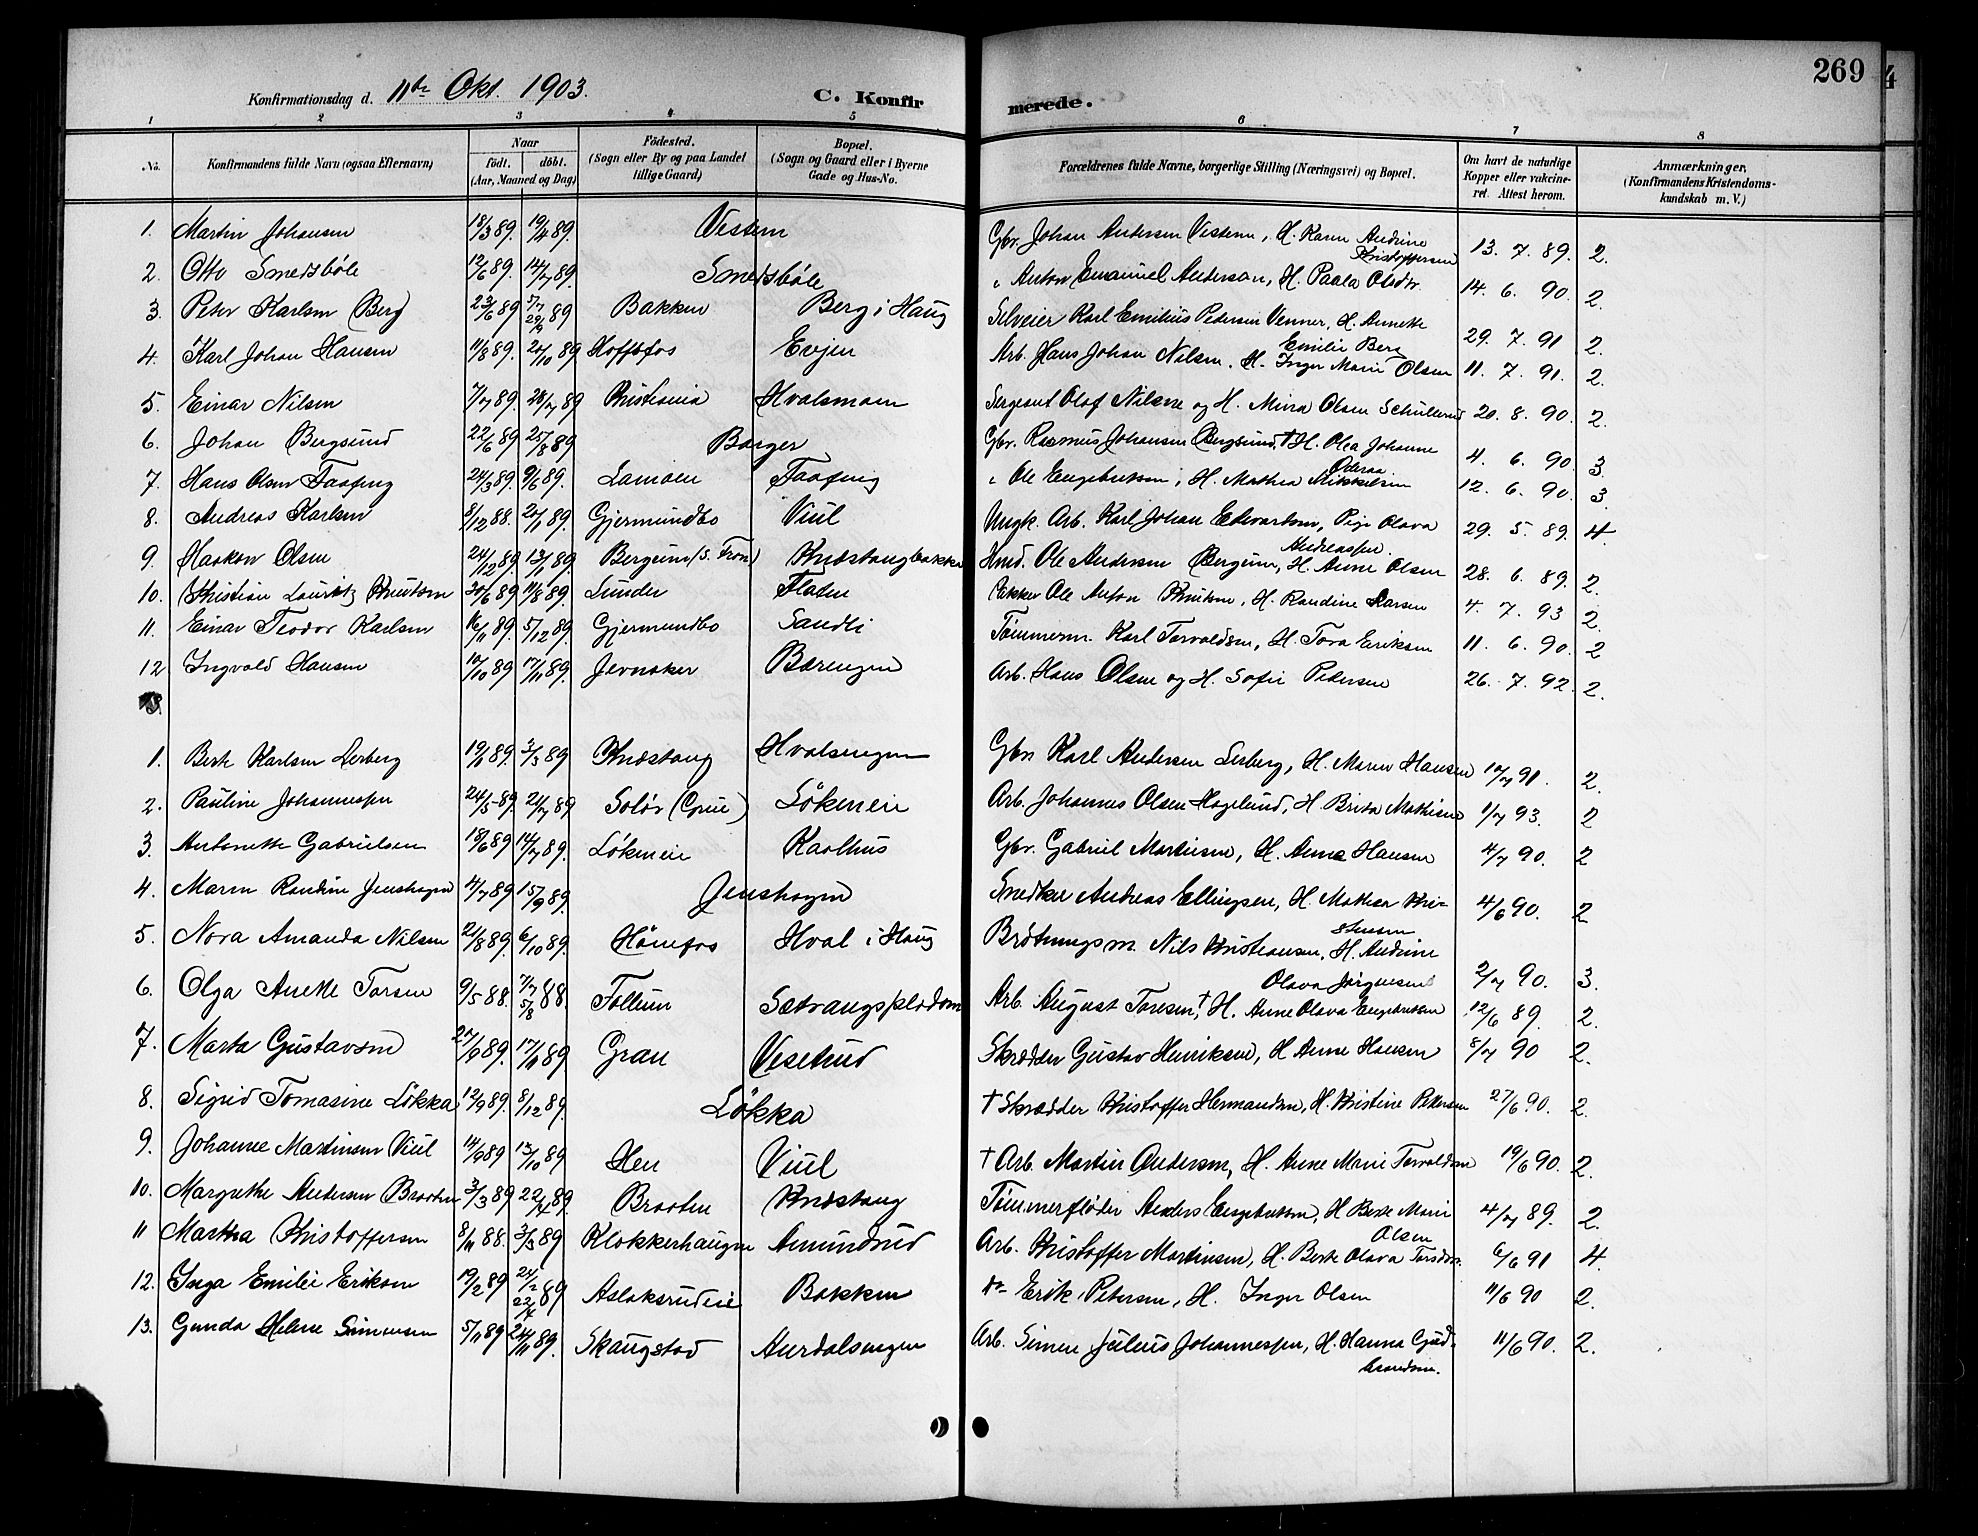 269
Konfirmationsdag d. 11te Okt. 1903. C. Konfirmerede.
1 2 3 4 5 6 7 8
No. Konfirmandens fulde Navn (ogsaa Efternavn) Naar födt. döbt. (Aar, Maaned og Dag) Födested. (Sogn eller By og paa Landet tillige Gaard) Bopæl. (Sogn og Gaard eller i Byerne Gade og Hus-No. Forældrenes fulde Navne, borgerlige Stilling (Næringsvei) og Bopæl. Om havt de naturlige Kopper eller vakcineret. Attest herom. Anmærkninger. (Konfirmandens Kristendomskundskab m. V.)
1. Martin Johansen 18/3 89. 19/4 89. Vestern Gbr. Johan Andersen Vestern, H. Karen Andrine Kristoffersen 13. 7. 89. 2.
2. Otto Smedsböle 12/6 89. 14/7 89. Smedsböle " Anton Emanuel Anderson, H. Paula Olsdtr. 14. 6. 90. 2.
3. Peter Karlsen Berg 23/6 89 5/7 29/9 89 Bakken Berg i Haug Selveier Karl Emilius Pedersen Venner, H. Annette Emilie Berg 29. 7. 91 2.
4. Karl Johan Hansen 11/8 89. 20/10 89 Hoffsfos Evjen Arb. Hans Johan Nilsen, H. Inger Marie Olsen 11. 7. 91. 2.
5. Einar Nilsen 7/7 89. 28/7 89 Kristiania Hvalsmoen Sergeant Olaf Nilsen og H. Mina Olsen Schullerud 20. 8. 90. 2.
6. Johan Bergsund 22/6 89 25/8 89 Borger Gbr. Rasmus Johansen Bergsund, † H. Olea Johanne 4. 6. 90. 3.
7. Hans Olsen Faafeng 24/3 89. 9/6 89. Lamoen Faafeng " Ole Engebretsen, H. Mathea Mikkelsen 12. 6. 90. 3
8. Andreas Karlsen 8/12 88. 20/1 89. Gjermundbo Viul Ungk. Arb. Karl Johan Edvardsen, Pige Olava Andreassen. 29. 5. 89. 4.
9. Haakon Olsen 24/12 89. 13/1 89. Bergum (S. Fron) Knæstangbakken Hmd. Ole Andersen Bergum, H. Anne Olsen 28. 6. 89. 2.
10. Kristian Lauritz Knutsen 30/6 89. 11/8 89. Lunder Flaten Ole Anton Knutsen, H. Randine Larsen 4. 7. 93 2.
11. Einar Teodor Karlsen 16/11 89. 5/12 89. Gjermundbo Sandli Tömmerm. Karl Torvaldsen, H. Tora Eriksen 11. 6. 90. 2
12 Ingvald Hansen 10/10 89 17/11 89. Jevnaker Bærengen Arb. Hans Olsen og H. Sofie Pedersen 26. 7. 92. 2.
1. Berte Karlsen Lerberg 19/1 89. 3/3 89 Knæstang Hvalsengen Gbr. Karl Andersen Lerberg, H. Maren Hansen 10/7 91. 2.
2. Pauline Johannessen 24/5 89. 21/7 89 Solör (Grue) Lökeneie Arb. Johannes Olsen Hagelund, H. Brita Mathisen 1/7 93. 2
3. Antonette Gabrielsen 18/6 89 14/7 89. Lökeneie Karlhus Gbr. Gabriel Martinsen, H. Anne Hansen 4/7 90. 2
4. Maren Randine Jenshagen 4/7 89 15/9 89. Jenshagen Snedker Andreas Ellingsen, H. Mathea Kristensen 4/6 90. 2
5. Nora Amanda Nilsen 21/8 89. 6/10 89. Hönefos Hval i Haug Brötningsm. Nils Kristiansen, H. Andrine Olava Jörgensen 2/7 90. 3.
6. Olga Anette Torsen 9/5 88. 7/7 5/8 88. Follum Sætrangspladsen Arb. August Toresen †, H. Anne Olava Engebretsen 12/6 89. 2.
7. Marta Gustavsen 27/9 89. 17/11 89 Gran Veseterud Skrædder Gustav Henriksen, H. Anne Hansen 8/7 90 2.
8. Sigrid Tomasine Lökka 12/9 89. 8/12 89. Lökka † Skrædder Kristoffer Hermandsen, H. Kristine Pettersen 27/6 90. 2.
9. Johanne Martinsen Viul 14/9 89 13/10 89 Hen Viul † Arb. Martin Andersen, H. Anne Marie Torvaldsen 19/6 90. 2.
10. Margrethe Andersen Braaten 3/3 89 22/4 89. Braaten Knæstang Tömmerflöder Anders Engebretsen, H. Berte Marie Olsen 4/7 89. 2.
11 Martha Kristoffersen 8/11 88. 3/3 89 Klokkerhaugen Amundrud Arb. Kristoffer Martinsen, H. Berte Olava Torsdtr. 6/6 91 4.
12. Inga Emilie Eriksen 19/2 89 24/2 22/4 89 Aslaksrudeie Bakken do Erik Petersen, H. Inger Olsen 11/6 90 2.
13. Gunda Helene Simensen 5/11 89 24/11 89. Skaugstad Aurdalsengen Arb. Simen Julius Johannessen, H. Hanna Gudbrandsen. 11/6 90. 2.